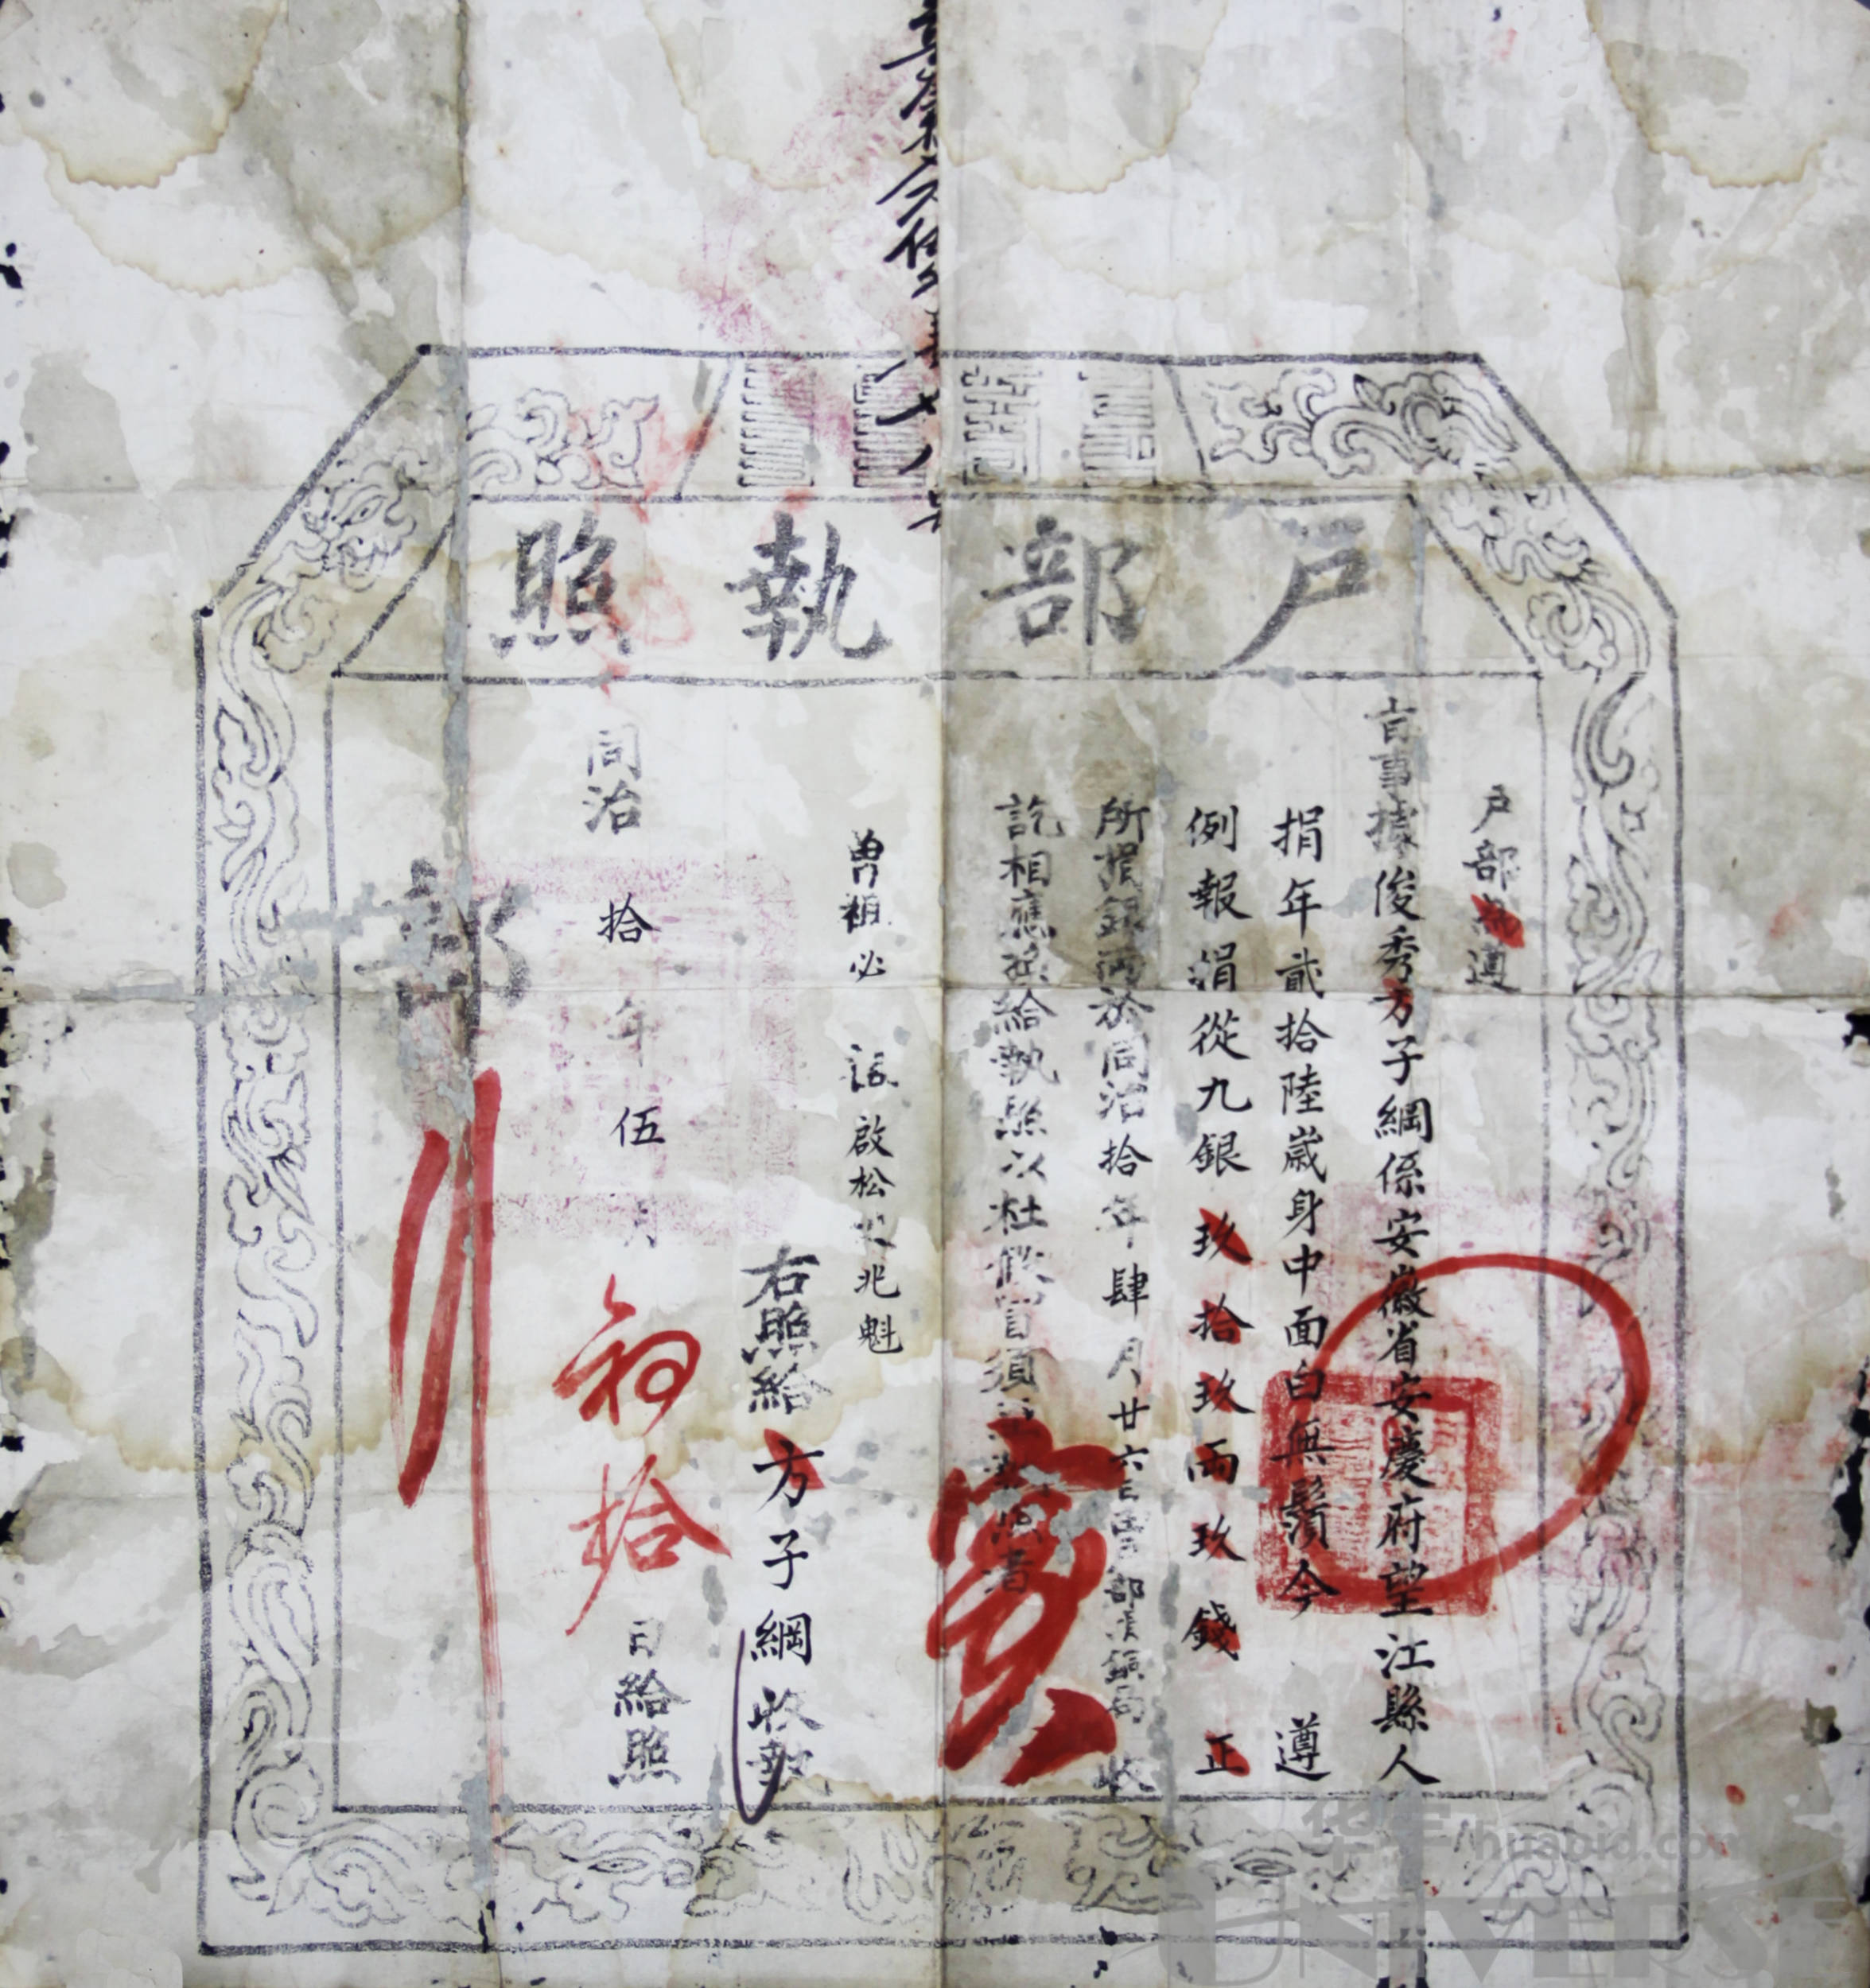 戶部執照
戶部為遵
旨事據俊秀方子綱係安徽省安慶府望江縣人
捐年貳拾陸歲身中面白無鬚今遵
例報捐從九銀玖拾玖兩玖錢正
所捐銀兩於同治拾年肆月廿六日由部捐銅局收
訖相應換給執照以杜假冒須至執照者
實
曾祖必 祖啟松父兆魁
右照給方子綱收執
同治拾年伍月初拾日給照
部
huabid.com
UNIVERSE